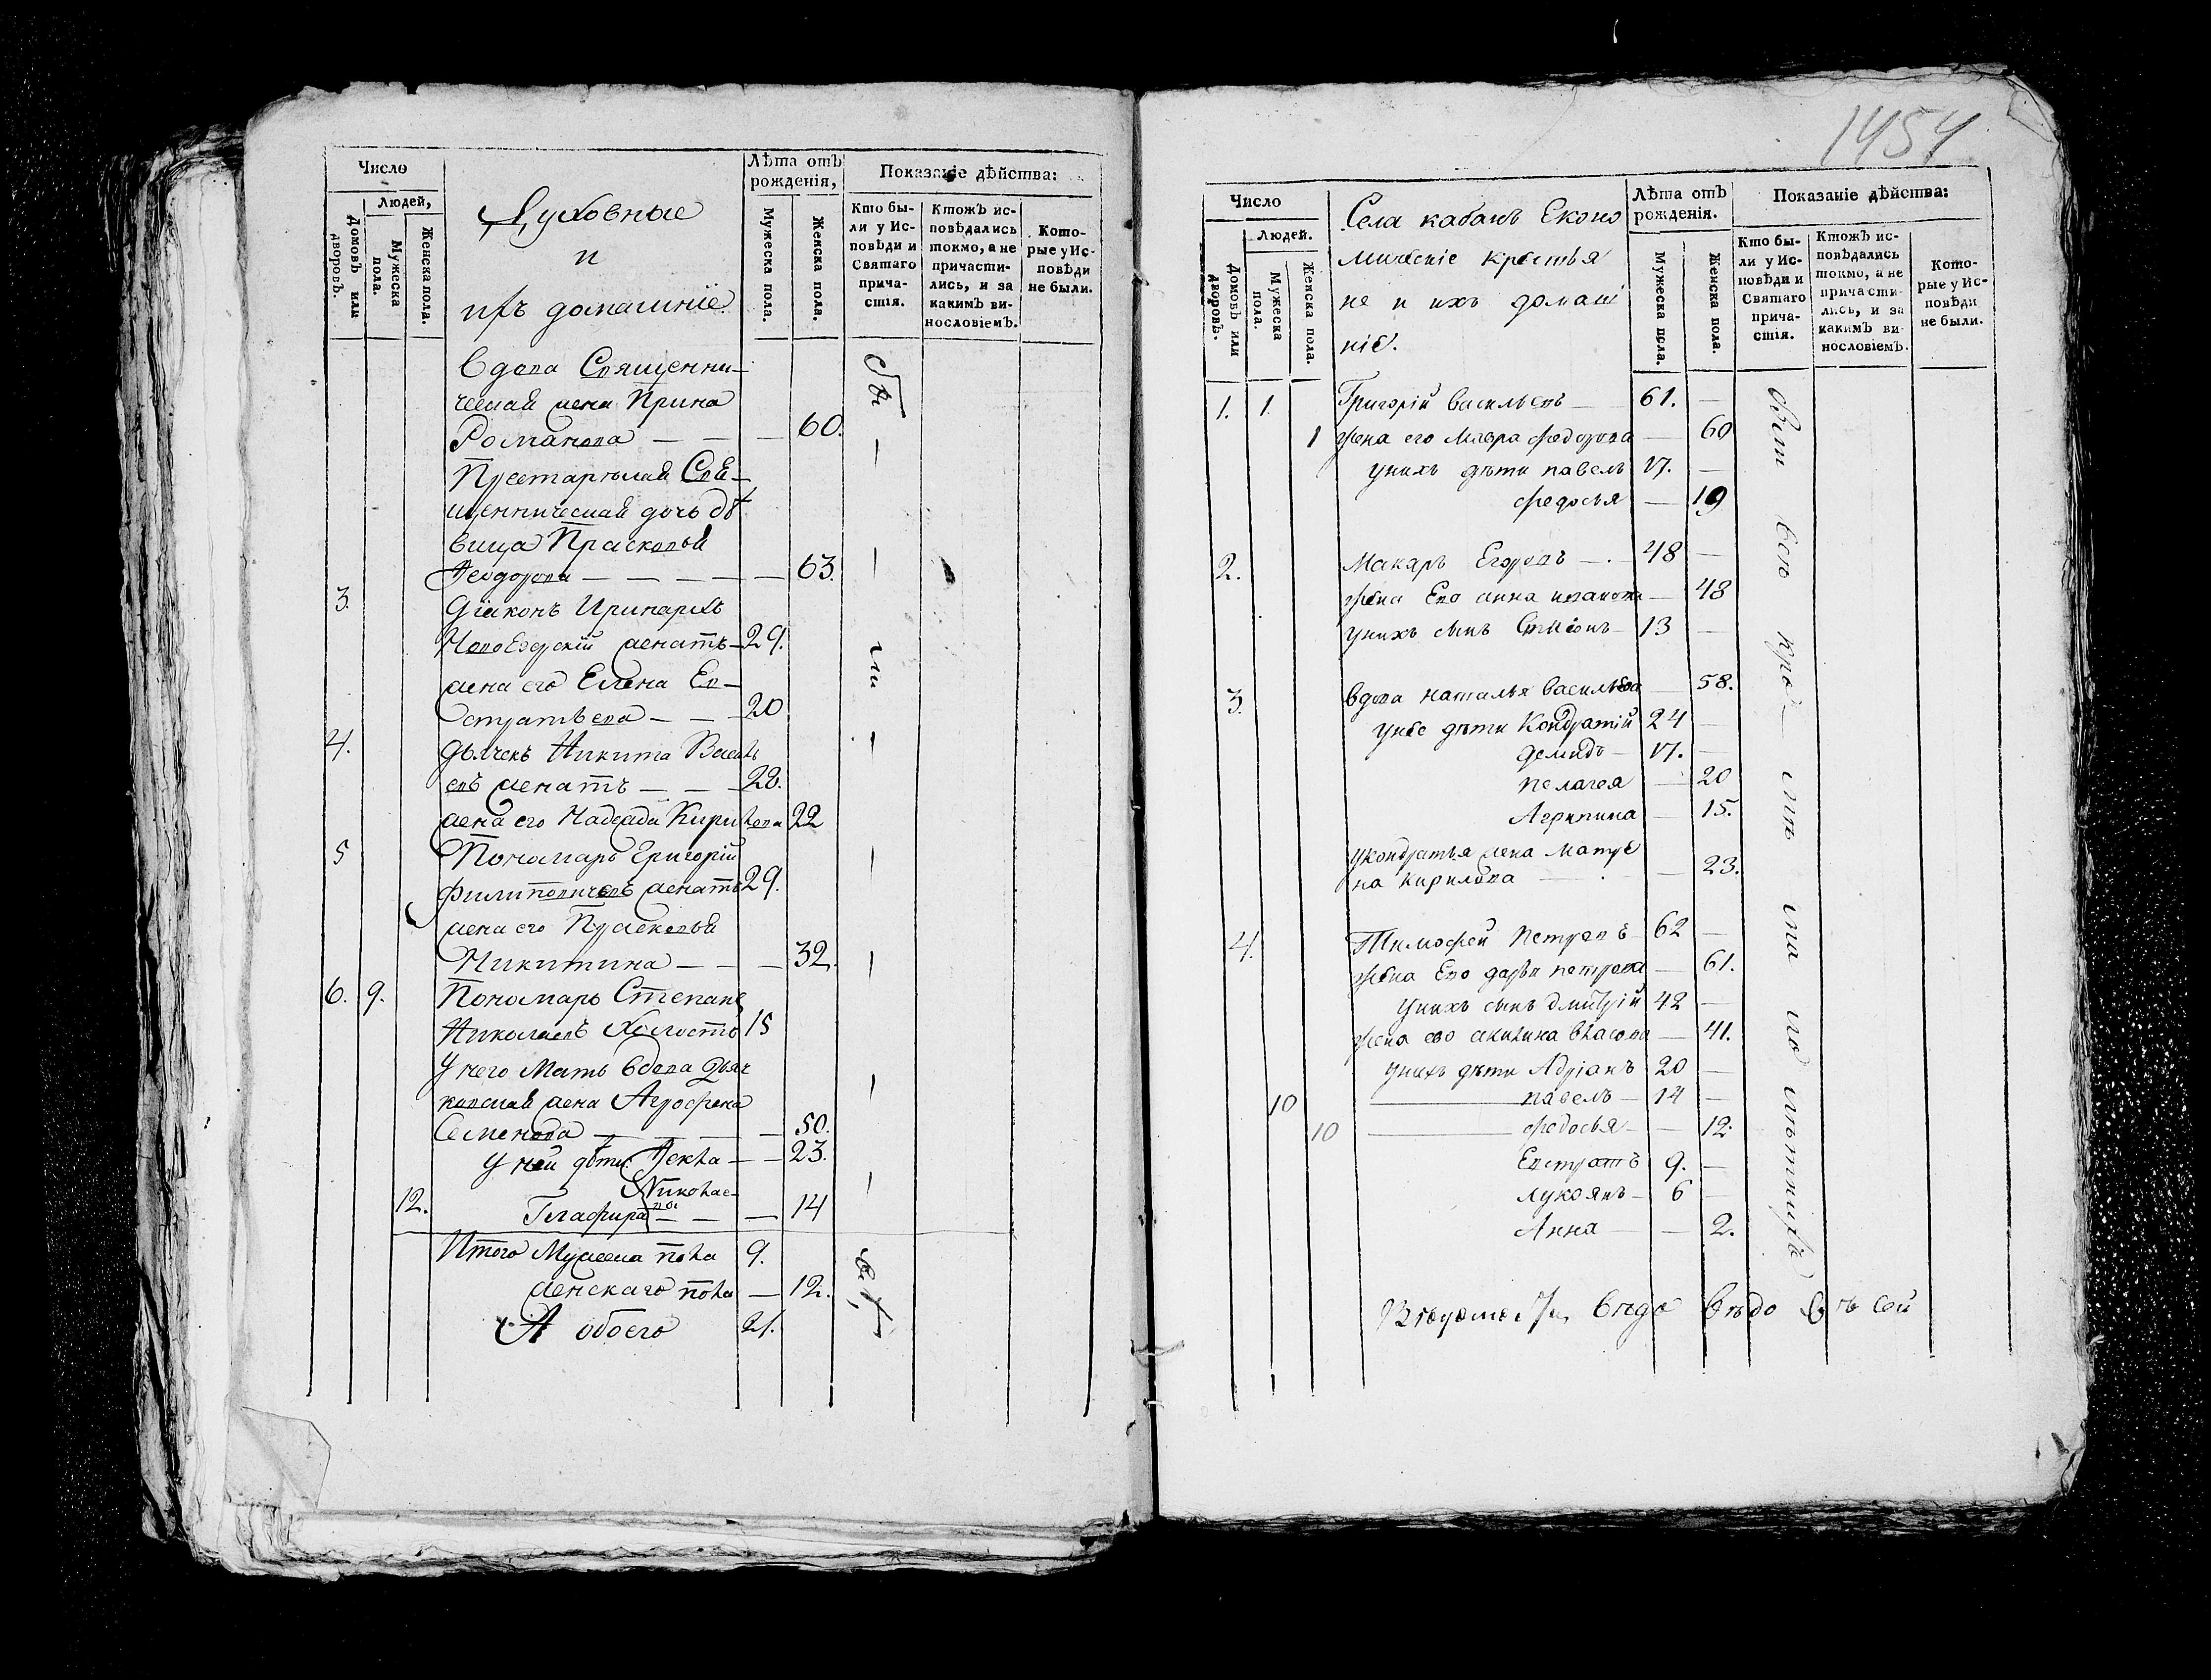 Число
Людей,
Домовъ или дворовъ.
Мужеска пола.
Женска пола.
Духовные
и
ихъ домашніе
Лѣта отъ рожденія,
Мужеска пола.
Женска пола.
Показаніе дѣйства:
Кто были у Исповѣди и Святаго причастія.
Ктожъ исповѣдались токмо, а не причастились, и за какимъ винословіемъ.
Которые у Исповѣди не были.
Вдова Священни-
ческая жена Ирина
Романова — — — 60.
Престарѣлая Свя-
щенническая дочь дѣ
вица Прасковья
Ѳеодорова — — — — — 63.
3. Діаконъ Иринархъ
Новоезерскій женатъ — 29.
жена его Елена Ев-
стратьева — — — 20
4. Дьячекъ Никита Василь
евъ женатъ — — — 28.
жена его Надежда Кирилова 22
5 Пономарь Григорій
Филиповичевъ женатъ 29.
жена его Прасковья
Никитина — — — 32.
6. 9. Пономарь Степанъ
Николаевъ Холостъ 15
У него Мать вдова Дьяч
ковская жена Агрофена
Семенова — — — — 50.
У ней дѣти Ѳекла — — 23.
Николае-
вы
12. Глафира — — — 14
Итого Мужеска пола 9.
женскаго пола — 12.
А обоего 21.
1454
Число
Людей.
Домовъ или дворовъ.
Мужеска пола.
Женска пола.
Села кабанъ Еконо
мическіе крестья
не и ихъ домаш
ніе.
Лѣта отъ рожденія.
Мужеска пола.
Женска пола.
Показаніе дѣйства:
Кто были у Исповѣди и Святаго причастія.
Ктожъ исповѣдались токмо, а не причастились, и за какимъ винословіемъ.
Которые у Исповѣди не были.
1. 1. Григорій Васильевъ — 61. —
1 жена его Мавра федорова — 60
у нихъ дѣти павелъ 17. —
федосья — 19
2. Макаръ Егоровъ — 48 —
жена Ево анна иванова — 48
у нихъ сынъ Симіонъ — 13 —
3. Вдова наталья Васильева — 58.
у нее дѣти Кондратій 24 —
демидъ — 17. —
пелагея — 20
Агрипина — 15.
у кондратья жена Матре
на кирилова — — 23.
4. Тимофей Петровъ — 62 —
жена Ево дарья петрова — 61.
у нихъ сынъ дмитрій 42 —
жена ево акилина власова — 41.
у нихъ дѣти Адріанъ 20 —
10 павелъ — 14 —
10 федосья — — 12.
Евстратъ 9. —
лукоянъ — 6 —
Анна — — 2.